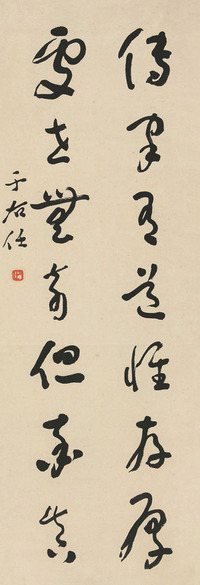 傳家有道惟存厚
處世無奇但率真
于右任